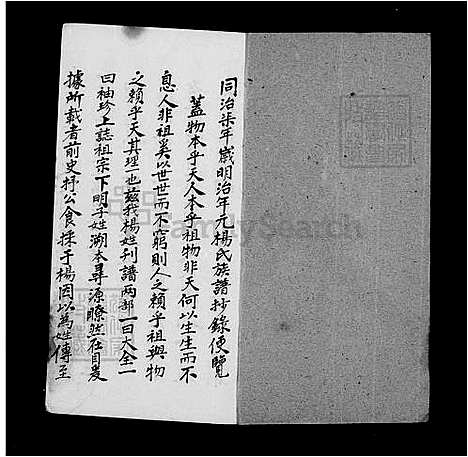 同治柒年歲明治年元楊氏族譜抄錄便覽
蓋物本乎天人本乎祖物非天何以生生而不
息人非祖奚以世世而不窮則人之賴乎祖與物
之賴乎天其理一也茲我楊姓刊譜两部一曰大全一
曰袖珍上誌祖宗下明子姓溯本尋源瞭然在目爰
據所載者前史抒公食採于楊因以為姓傳至
FamilySearch